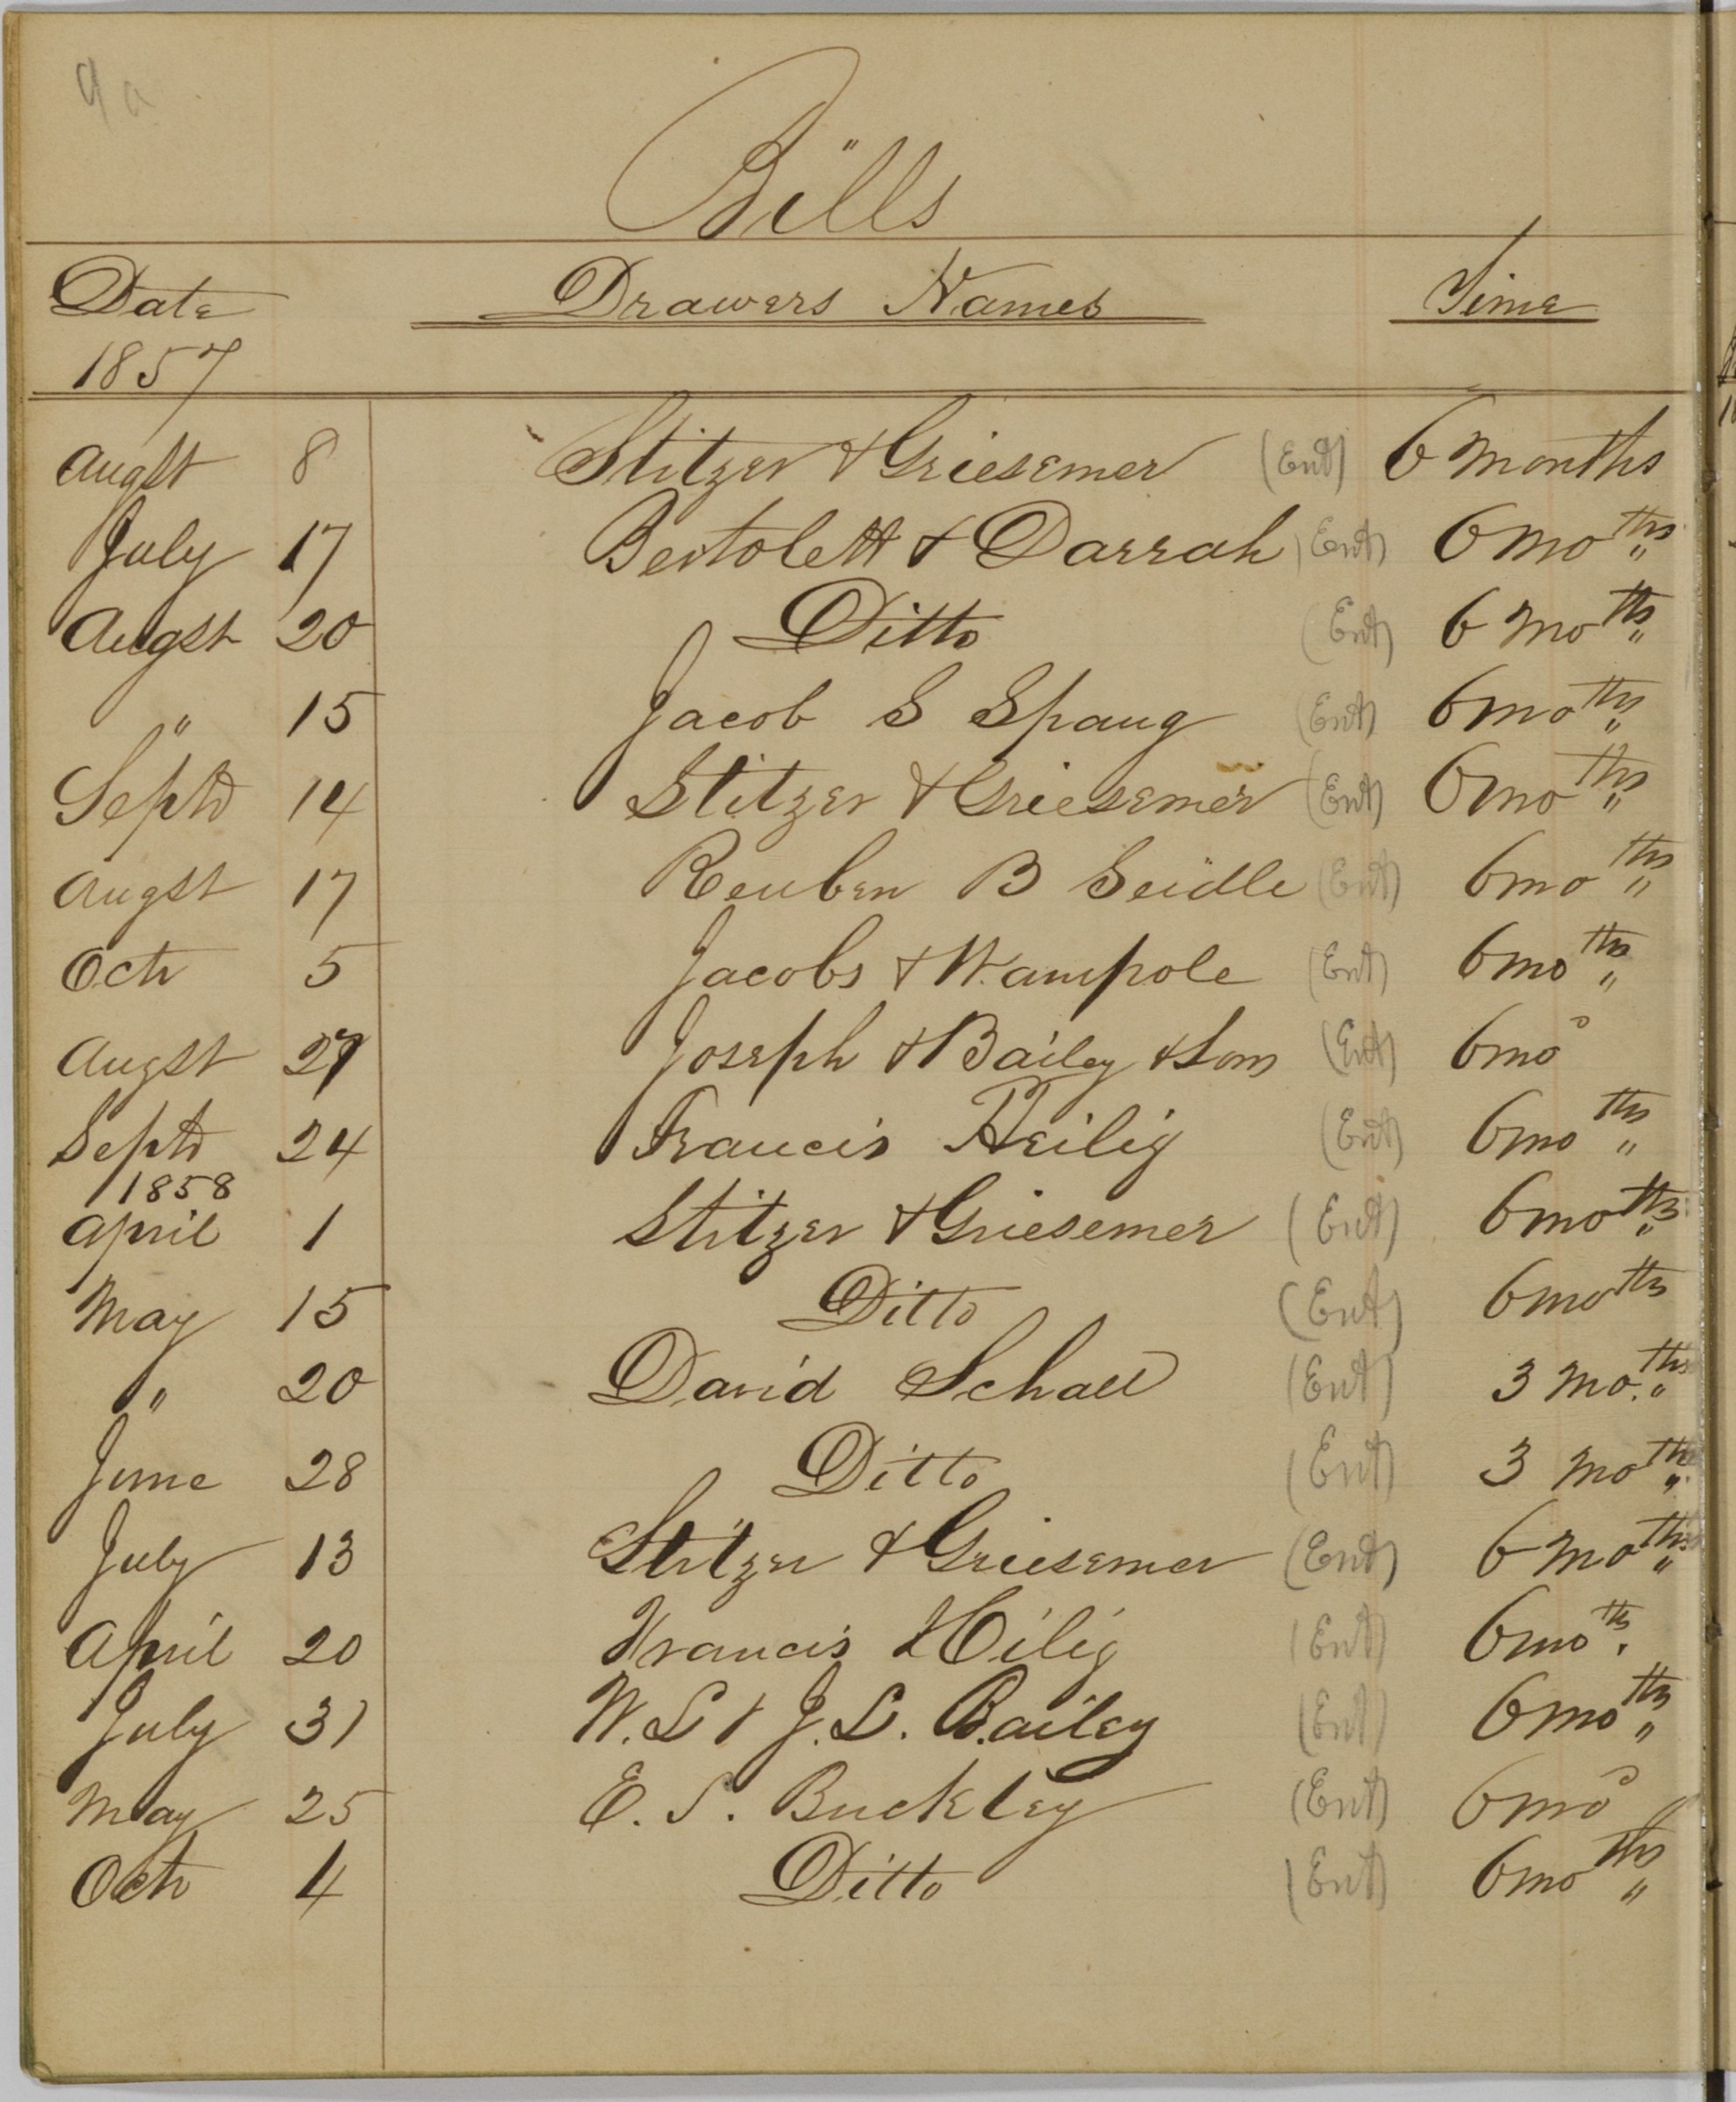 9a
Bills
Date Drawers Names Time
1857
Augst 8 Stitzer & Griesemer (Ent) 6 months
July 17 Bertolett & Darrah (Ent) 6 moths
Augst 20 Ditto (Ent) 6 moths
" 15 Jacob S Spaug (Ent) 6 moths
Septr 14 Stitzer & Griesemer (Ent) 6 moths
Augst 17 Reuben B Seidle (Ent) 6 moths
Octr 5 Jacobs & Wampole (Ent) 6 moths
Augst 27 Joseph & Bailey & Son (Ent) 6 mos
Septr 24 Francis Heilig (Ent) 6 moths
1858
April 1 Stitzer & Griesemer (Ent) 6 moths
May 15 Ditto (Ent) 6 moths
" 20 David Schall (Ent) 3 moths
June 28 Ditto (Ent) 3 moths
July 13 Stitzer & Griesemer (Ent) 6 moths
April 20 Francis Hilig (Ent) 6 moths
July 31 W. L & J. L. Bailey (Ent) 6 moths
May 25 E. S. Buckley (Ent) 6 mos
Octr 4 Ditto (Ent) 6 moths